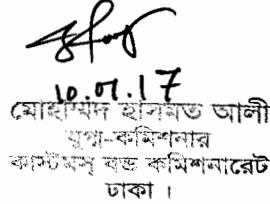 10.01.17
মোহাম্মদ হাসমত আলী
যুগ্ম-কমিশনার
কাস্টমস্ বন্ড কমিশনারেট
ঢাকা ।